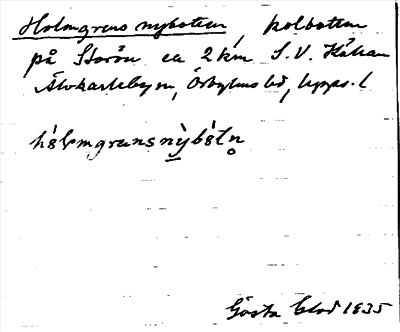 Holmgrens nybotten, kolbotten
på Storön ca 2 km S.V. Kåhan
Älvkarleby sn, Örbyhus hd, Upps. l
hólmgrensnỳbótn̥
Gösta 1935